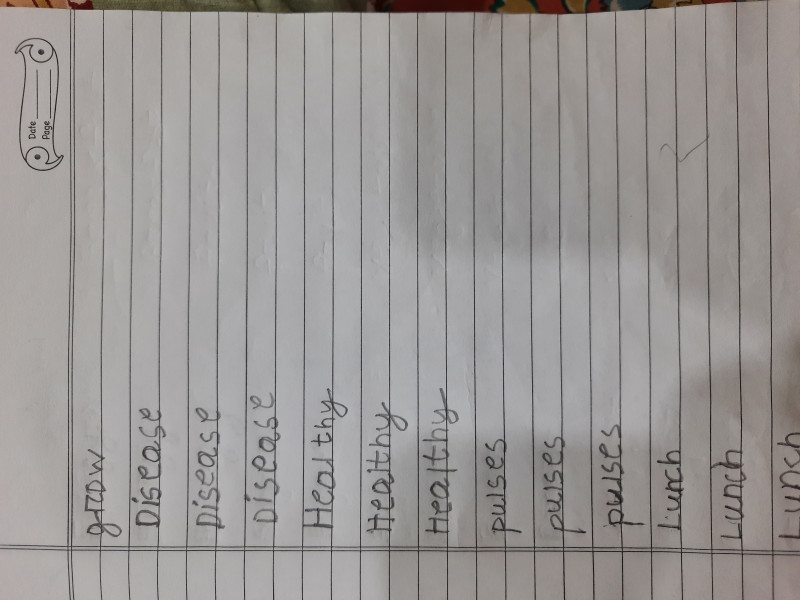 Date
Page
grow
Disease
Disease
Disease
Healthy
Healthy
Healthy
pulses
pulses
pulses
Lunch
Lunch
Lunch